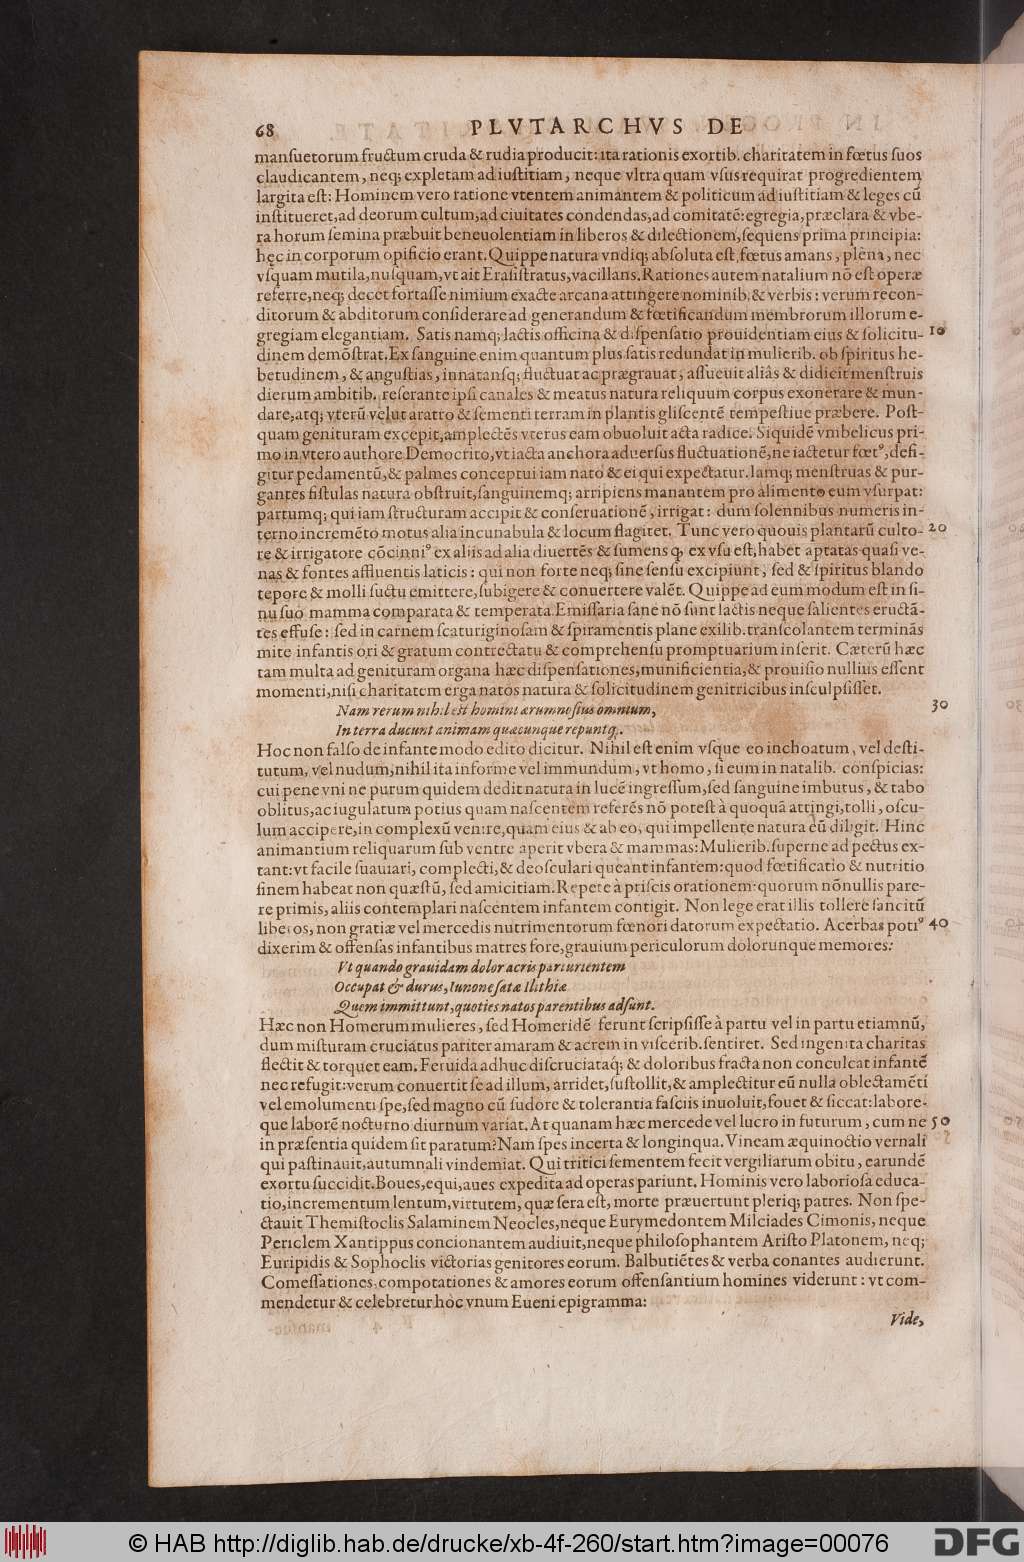 68 PLVTARCHVS DE
manſuetorum fructum cruda & rudia producit: ita rationis exortib. charitatem in fœtus ſuos
claudicantem, neq; expletam ad iuſtitiam, neque vltra quam vſus requirat progredientem
largita eſt: Hominem vero ratione vtentem animantem & politicum ad iuſtitiam & leges cũ
inſtitueret, ad deorum cultum, ad ciuitates condendas, ad comitatē: egregia, præclara & vbe-
ra horum ſemina præbuit beneuolentiam in liberos & dilectionem, ſequens prima principia:
hęc in corporum opificio erant. Quippe natura vndiq; abſoluta eſt, fœtus amans, plena, nec
vſquam mutila, nuſquam, vt ait Eraſiſtratus, vacillans. Rationes autem natalium nõ eſt operæ
referre, neq; decet fortaſſe nimium exacte arcana attingere nominib. & verbis: verum recon-
ditorum & abditorum conſiderare ad generandum & fœtificandum membrorum illorum e-
gregiam elegantiam. Satis namq; lactis officina & diſpenſatio prouidentiam eius & ſolicitu- 10
dinem demõſtrat. Ex ſanguine enim quantum plus ſatis redundat in mulierib. ob ſpiritus he-
betudinem, & anguſtias, innatanſq; fluctuat ac prægrauat, aſſueuit aliâs & didicit menſtruis
dierum ambitib. reſerante ipſi canales & meatus natura reliquum corpus exonerare & mun-
dare, atq; vterũ velut aratro & ſementi terram in plantis gliſcentē tempeſtiue præbere. Poſt-
quam genituram excepit, amplectēs vterus eam obuoluit acta radice. Siquidē vmbelicus pri-
mo in vtero authore Democrito, vt iacta anchora aduerſus fluctuationē, ne iactetur fœtꝰ, defi-
gitur pedamentũ, & palmes conceptui iam nato & ei qui expectatur. Iamq; menſtruas & pur-
gantes fiſtulas natura obſtruit, ſanguinemq; arripiens manantem pro alimento eum vſurpat:
partumq; qui iam ſtructuram accipit & conſeruationē, irrigat: dum ſolennibus numeris in-
terno incremēto motus alia incunabula & locum flagitet. Tunc vero quouis plantarũ culto- 20
re & irrigatore cõcinniꝰ ex aliis ad alia diuertēs & ſumens q, ex vſu eſt, habet aptatas quaſi ve-
nas & fontes affluentis laticis: qui non forte neq; ſine ſenſu excipiunt, ſed & ſpiritus blando
tepore & molli ſuctu emittere, ſubigere & conuertere valēt. Quippe ad eum modum eſt in ſi-
nu ſuo mamma comparata & temperata. Emiſſaria ſane nõ ſunt lactis neque ſalientes eructã-
tes effuſe: ſed in carnem ſcaturiginoſam & ſpiramentis plane exilib. tranſcolantem terminãs
mite infantis ori & gratum contrectatu & comprehenſu promptuarium inſerit. Cæterũ hæc
tam multa ad genituram organa hæc diſpenſationes, munificientia, & prouiſio nullius eſſent
momenti, niſi charitatem erga natos natura & ſolicitudinem genitricibus inſculpſiſſet.
Nam rerum nihil eſt homini ærumnoſius omnium, 30
In terra ducunt animam quæcunque repuntq.
Hoc non falſo de infante modo edito dicitur. Nihil eſt enim vſque eo inchoatum, vel deſti-
tutum, vel nudum, nihil ita informe vel immundum, vt homo, ſi eum in natalib. conſpicias:
cui pene vni ne purum quidem dedit natura in lucē ingreſſum, ſed ſanguine imbutus, & tabo
oblitus, ac iugulatum potius quam naſcentem referēs nõ poteſt à quoquã attingi, tolli, oſcu-
lum accipere, in complexũ venire, quam eius & ab eo, qui impellente natura eũ diligit. Hinc
animantium reliquarum ſub ventre aperit vbera & mammas: Mulierib. ſuperne ad pectus ex-
tant: vt facile ſuauiari, complecti, & deoſculari queant infantem: quod fœtificatio & nutritio
finem habeat non quæſtũ, ſed amicitiam. Repete à priſcis orationem: quorum nõnullis pare-
re primis, aliis contemplari naſcentem infantem contigit. Non lege erat illis tollere ſancitũ
liberos, non gratiæ vel mercedis nutrimentorum fœnori datorum expectatio. Acerbas potiꝰ 40
dixerim & offenſas infantibus matres fore, grauium periculorum dolorunque memores:
Vt quando grauidam dolor acris parturientem
Occupat & durus, Iunone ſatæ Ilithiæ
Quem immittunt, quoties natos parentibus adſunt.
Hæc non Homerum mulieres, ſed Homeridē ferunt ſcripſiſſe à partu vel in partu etiamnũ,
dum miſturam cruciatus pariter amaram & acrem in viſcerib. ſentiret. Sed ingenita charitas
flectit & torquet eam. Feruida adhuc diſcruciataq; & doloribus fracta non conculcat infantē
nec refugit: verum conuertit ſe ad illum, arridet, ſuſtollit, & amplectitur eũ nulla oblectamēti
vel emolumenti ſpe, ſed magno cũ ſudore & tolerantia faſciis inuoluit, fouet & ſiccat: labore-
que laborē nocturno diurnum variat. At quanam hæc mercede vel lucro in futurum, cum ne 50
in præſentia quidem ſit paratum? Nam ſpes incerta & longinqua. Vineam æquinoctio vernali
qui paſtinauit, autumnali vindemiat. Qui tritici ſementem fecit vergiliarum obitu, earundē
exortu ſuccidit. Boues, equi, aues expedita ad operas pariunt. Hominis vero laborioſa educa-
tio, incrementum lentum, virtutem, quæ ſera eſt, morte præuertunt pleriq; patres. Non ſpe-
ctauit Themiſtoclis Salaminem Neocles, neque Eurymedontem Milciades Cimonis, neque
Periclem Xantippus concionantem audiuit, neque philoſophantem Ariſto Platonem, neq;
Euripidis & Sophoclis victorias genitores eorum. Balbutiētes & verba conantes audierunt.
Comeſſationes, compotationes & amores eorum offenſantium homines viderunt: vt com-
mendetur & celebretur hoc vnum Eueni epigramma:
Vide,
© HAB http://diglib.hab.de/drucke/xb-4f-260/start.htm?image=00076
DFG